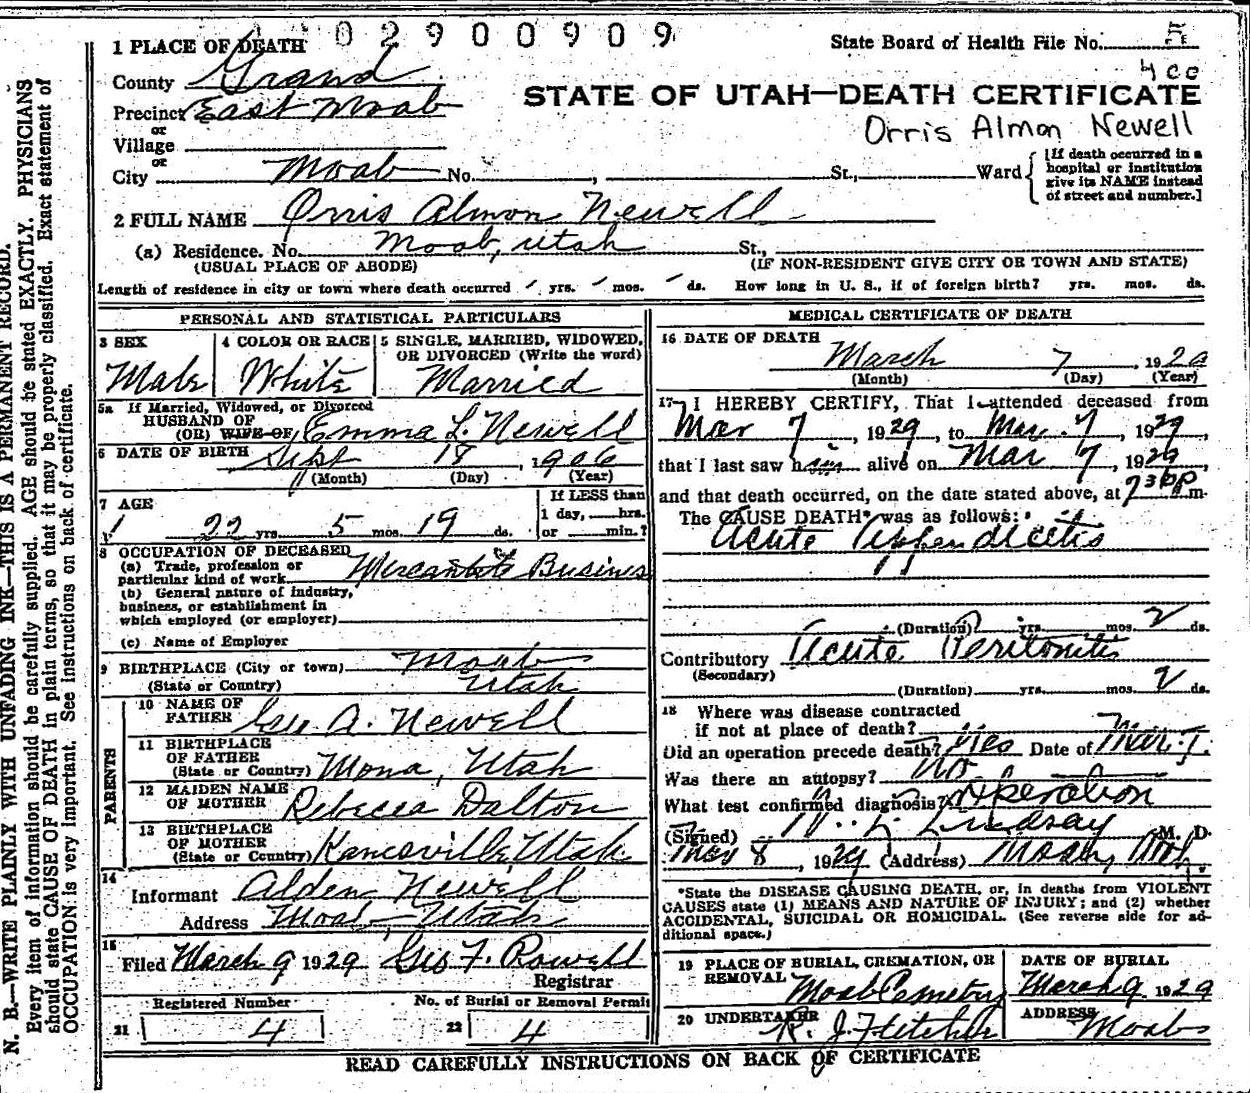 02900909
1 PLACE OF DEATH
State Board of Health File No. 5
County Grand
400
Precinct East Moab
STATE OF UTAH—DEATH CERTIFICATE
or
Orris Almon Newell
Village
or
City Moab No. , St., Ward
[If death occurred in a
hospital or institution
give its NAME instead
of street and number.]
2 FULL NAME Orris Almon Newell
(a) Residence. No. Moab, Utah St.,
(USUAL PLACE OF ABODE) (IF NON-RESIDENT GIVE CITY OR TOWN AND STATE)
Length of residence in city or town where death occurred yrs. mos. ds. How long in U. S., if of foreign birth? yrs. mos. ds.
PERSONAL AND STATISTICAL PARTICULARS
3 SEX
Male
4 COLOR OR RACE
White
5 SINGLE, MARRIED, WIDOWED,
OR DIVORCED (Write the word)
Married
5a If Married, Widowed, or Divorced
HUSBAND OF
(OR) WIFE OF Emma L. Newell
6 DATE OF BIRTH Sept 18, 1906
(Month) (Day) (Year)
7 AGE
22 yrs. 5 mos. 19 ds.
If LESS than
1 day, hrs.
or min.?
8 OCCUPATION OF DECEASED
(a) Trade, profession or
particular kind of work Mercantile Busines
(b) General nature of industry,
business, or establishment in
which employed (or employer)
(c) Name of Employer
9 BIRTHPLACE (City or town) Moab
(State or Country) Utah
PARENTS
10 NAME OF
FATHER Geo A. Newell
11 BIRTHPLACE
OF FATHER
(State or Country) Mona, Utah
12 MAIDEN NAME
OF MOTHER Rebecca Dalton
13 BIRTHPLACE
OF MOTHER
(State or Country) Kanesville Utah
14
Informant Alden Newell
Address Moab, Utah
15
Filed March 9 1929 Geo F. Rowell
Registrar
Registered Number
21 4
No. of Burial or Removal Permit
22 4
MEDICAL CERTIFICATE OF DEATH
16 DATE OF DEATH
March 7, 1929
(Month) (Day) (Year)
17 I HEREBY CERTIFY, That I attended deceased from
Mar 7, 1929, to Mar. 7, 1929,
that I last saw him alive on Mar 7, 1929
and that death occurred, on the date stated above, at 730p m.
The CAUSE DEATH* was as follows:
Acute Appendicitis
(Duration) yrs. mos. 2 ds.
Contributory Acute Peritonitis
(Secondary)
(Duration) yrs. mos. 2 ds.
18 Where was disease contracted
if not at place of death?
Did an operation precede death? Yes Date of Mar. 7.
Was there an autopsy? No
What test confirmed diagnosis? Operation
(Signed) Lindsay M. D.
Mar 8, 1929 (Address) Moab, Utah
*State the DISEASE CAUSING DEATH, or, in deaths from VIOLENT
CAUSES state (1) MEANS AND NATURE OF INJURY; and (2) whether
ACCIDENTAL, SUICIDAL OR HOMICIDAL. (See reverse side for ad-
ditional space.)
19 PLACE OF BURIAL, CREMATION, OR
REMOVAL Moab Cemetery
DATE OF BURIAL
March 9, 1929
20 UNDERTAKER
R. J. Fletcher
ADDRESS
Moab
READ CAREFULLY INSTRUCTIONS ON BACK OF CERTIFICATE
N. B.—WRITE PLAINLY WITH UNFADING INK—THIS IS A PERMANENT RECORD.
Every item of information should be carefully supplied. AGE should be stated EXACTLY. PHYSICIANS
should state CAUSE OF DEATH in plain terms, so that it may be properly classified. Exact statement of
OCCUPATION is very important. See instructions on back of certificate.